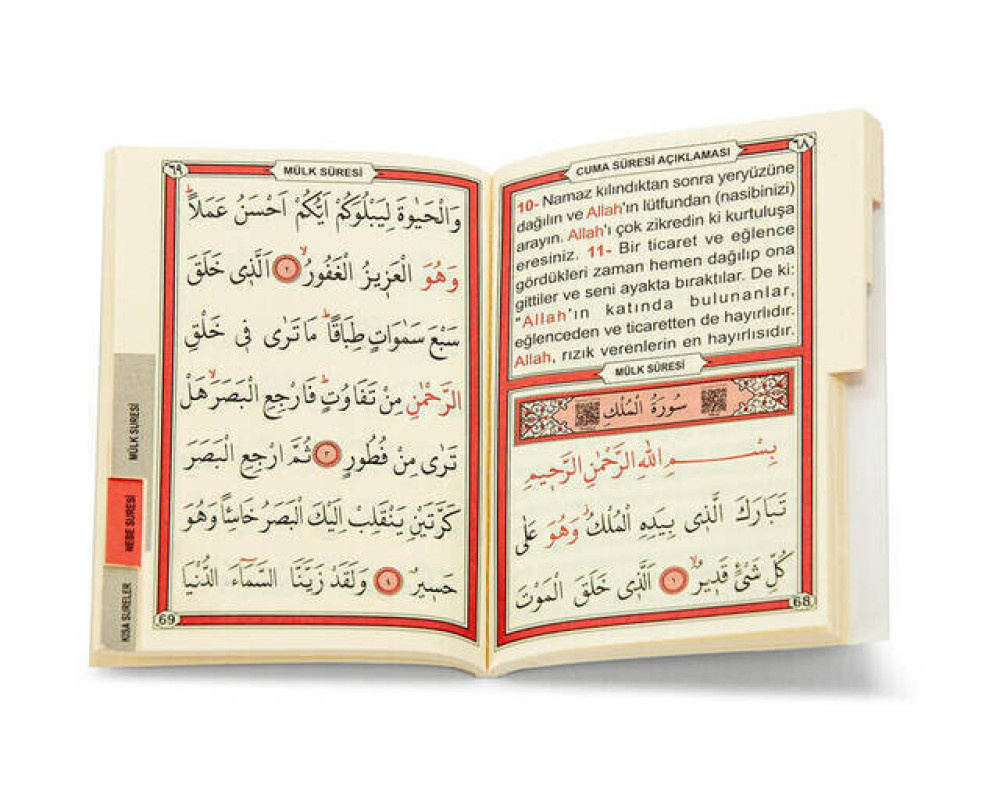 ٦٨
CUMA SÛRESİ AÇIKLAMASI
10- Namaz kılındıktan sonra yeryüzüne
dağılın ve Allah'ın lütfundan (nasibinizi)
arayın. Allah'ı çok zikredin ki kurtuluşa
eresiniz. 11- Bir ticaret ve eğlence
gördükleri zaman hemen dağılıp ona
gittiler ve seni ayakta bıraktılar. De ki:
"Allah'ın katında bulunanlar,
eğlenceden ve ticaretten de hayırlıdır.
Allah, rızık verenlerin en hayırlısıdır.
MÜLK SÛRESİ
سُورَةُ الْمُلْكِ
بِسْــــــمِ اللّٰهِ الرَّحْمٰنِ الرَّحٖيمِ
تَبَارَكَ الَّذٖى بِيَدِهِ الْمُلْكُۘ وَهُوَ عَلٰى
كُلِّ شَیْءٍ قَدٖيرٌۙ ١ اَلَّذٖى خَلَقَ الْمَوْتَ
68
٦٩
MÜLK SÛRESİ
وَالْحَيٰوةَ لِيَبْلُوَكُمْ اَيُّكُمْ اَحْسَنُ عَمَلًاؕ
وَهُوَ الْعَزٖيزُ الْغَفُورُۙ ٢ اَلَّذٖى خَلَقَ
سَبْعَ سَمٰوَاتٍ طِبَاقًاؕ مَا تَرٰى فٖى خَلْقِ
الرَّحْمٰنِ مِنْ تَفَاوُتٍؕ فَارْجِعِ الْبَصَرَۙ هَلْ
تَرٰى مِنْ فُطُورٍ ٣ ثُمَّ ارْجِعِ الْبَصَرَ
كَرَّتَيْنِ يَنْقَلِبْ اِلَيْكَ الْبَصَرُ خَاسِئًا وَهُوَ
حَسٖيرٌ ٤ وَلَقَدْ زَيَّنَّا السَّمَٓاءَ الدُّنْيَا
69
MÜLK SURESİ
NEBE SURESİ
KISA SURELER